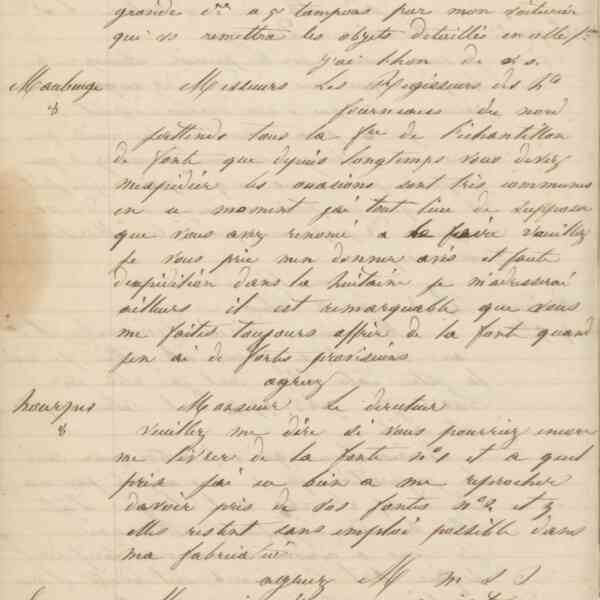 grande Vsse a 52 tampons par mon voiturier
qui vs remettra les objets détaillés en cette fre
j'ai lhon de vs s.
Maubeuge
8
Messieurs Les Régisseurs des hts
fourneaux du nord
jattends tous la fre de l'echantillon
de fonte que depuis longtemps vous devez
mexpédier les ocasions sont très communes
en ce moment j'ai tout lieu de supposer
que vous avez renoncé a le faire veuillez
je vous prie men donner avis et faute
dexpédition dans la huitaine je m'adresserai
ailleurs il est remarquable que vous
me faites toujours offrir de la fonte quand
jen ai de fortes provisions
agréez
hourpes
8
Monsieur Le directeur
veuillez me dire si vous pourriez encore
me livrer de la fonte no 1 et a quel
prix j'ai eu bien a me reprocher
davoir pris de vos fontes nos 2 et 3
elles restent sans emploi possible dans
ma fabricaton
agréez M m s s